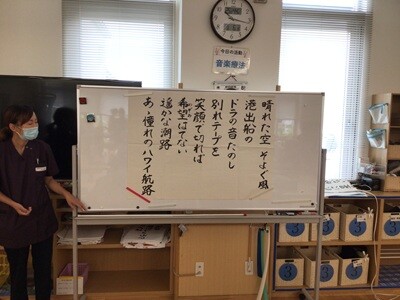 今日の活動
音楽療法
晴れた空 そよぐ風
港出船の
ドラの音たのし
別れテープを
笑顔で切れば
希望はてない
遥かな潮路
あゝ憧れのハワイ航路
3
3
3
3
3
3